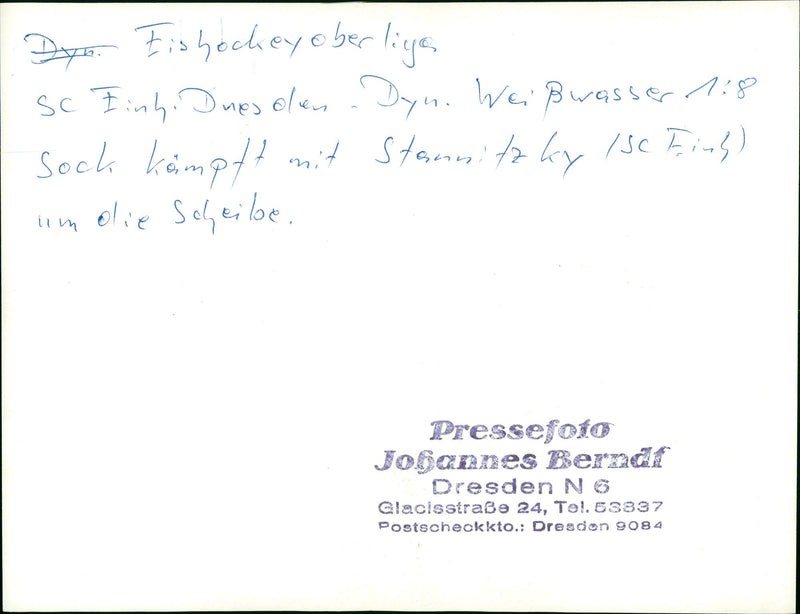 Dyn. Eishockeyoberliga
SC Einh. Dresden - Dyn. Weißwasser 1:8
Sock kämpft mit Stannitzky (SC Einh)
um die Scheibe.
Pressefoto
Johannes Berndt
Dresden N 6
Glacisstraße 24, Tel. 53837
Postscheckkto.: Dresden 9084